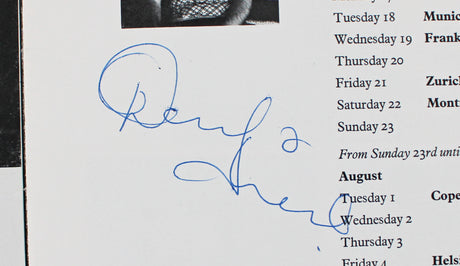 Tuesday 18 Munic
Wednesday 19 Frank
Thursday 20
Friday 21 Zuric
Saturday 22 Mont
Sunday 23
From Sunday 23rd until
August
Tuesday 1 Cope
Wednesday 2
Thursday 3
Friday 4 Helsi